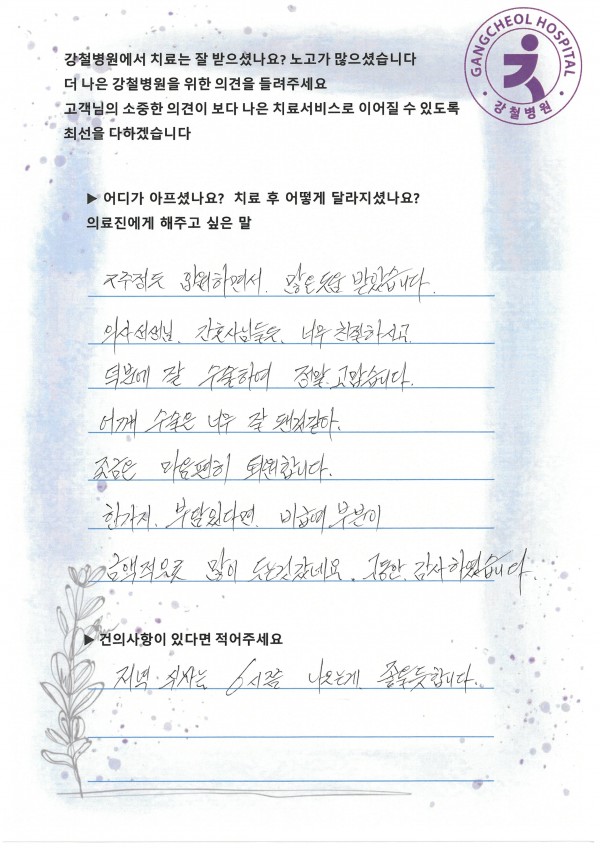 강철병원에서 치료는 잘 받으셨나요? 노고가 많으셨습니다
더 나은 강철병원을 위한 의견을 들려주세요
고객님의 소중한 의견이 보다 나은 치료서비스로 이어질 수 있도록
최선을 다하겠습니다
GANGCHEOL HOSPITAL
강철병원
▶ 어디가 아프셨나요? 치료 후 어떻게 달라지셨나요?
의료진에게 해주고 싶은 말
2주정도 입원하면서. 많은 도움 받았습니다.
의사선생님, 간호사님들도, 너무 친절하시고
덕분에 잘 수술하여 정말 고맙습니다.
어깨 수술은 너무 잘 된것같아.
조금은 마음편히 퇴원합니다.
한가지. 부담된다면. 비급여 부분이
금액적으로 많이 드는것같네요. 그동안. 감사하였습니다.
▶ 건의사항이 있다면 적어주세요
저녁 식사는 6시쯤 나오는게. 좋을듯합니다.